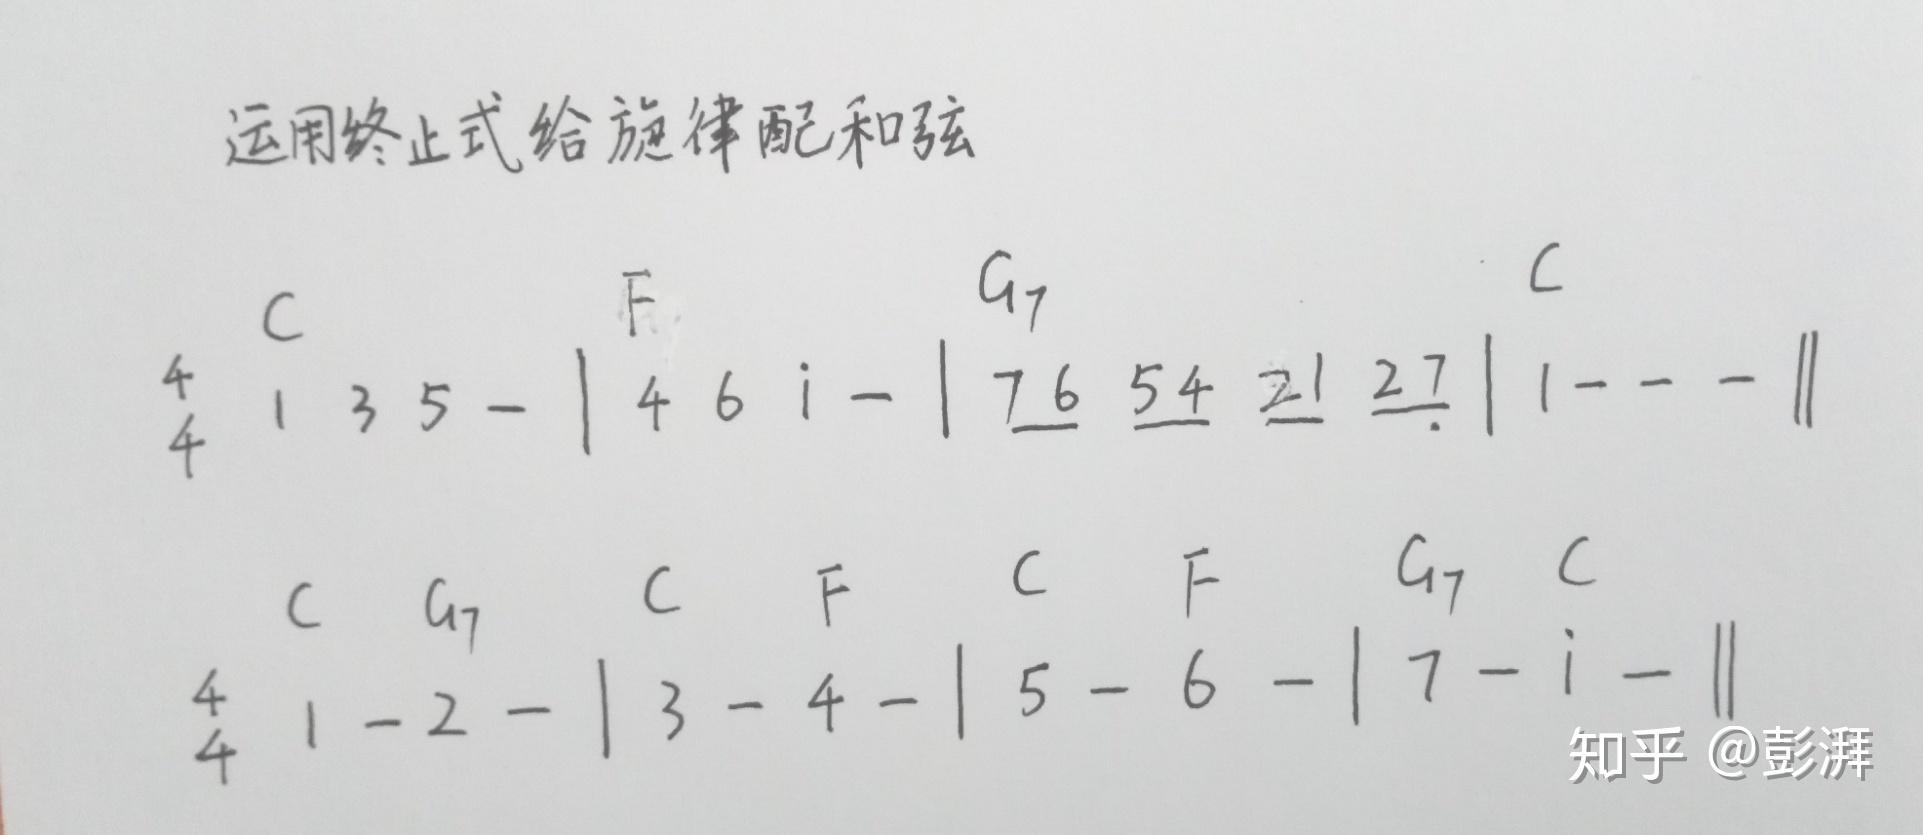 运用终止式给旋律配和弦
C F G7 C
4/4 1 3 5 - | 4 6 i - | 76 54 21 27 | 1 - - - ‖
C G7 C F C F G7 C
4/4 1 - 2 - | 3 - 4 - | 5 - 6 - | 7 - i - ‖
知乎 @彭湃